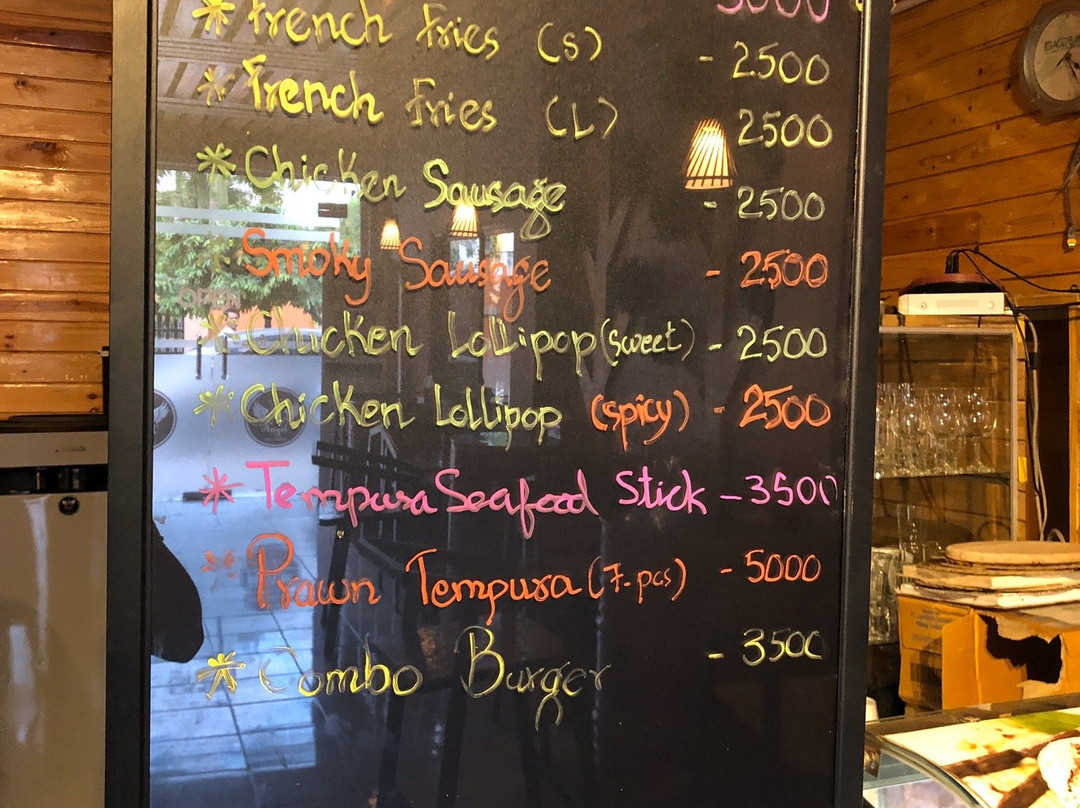 * French Fries (S) - 2500
* French Fries (L) 2500
* Chicken Sausage - 2500
* Smoky Sausage - 2500
OPEN
* Chicken Lollipop (sweet) - 2500
* Chicken Lollipop (spicy) - 2500
* Tempura Seafood Stick - 3500
* Prawn Tempura (7-pcs) - 5000
* Combo Burger - 3500